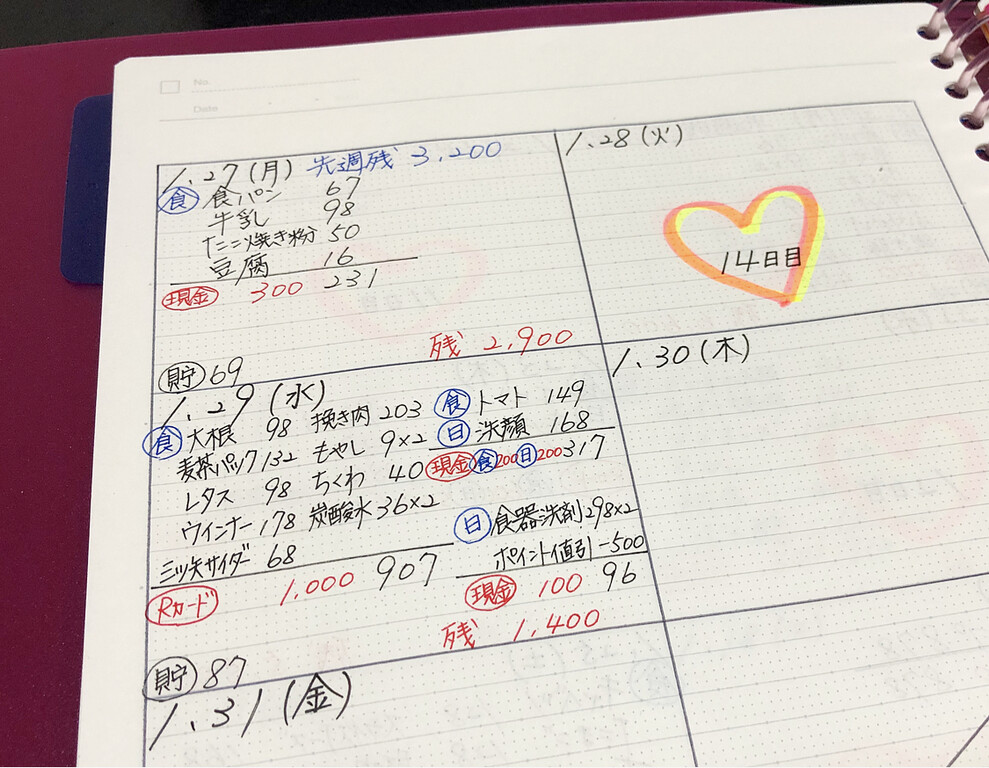 No.
Date
1.27(月) 先週残 3,200
食 食パン 67
牛乳 98
たこ焼き粉 50
豆腐 16
現金 300 231
残 2,900
貯 69
1.28(火)
14日目
1.29(水)
食 大根 98 挽き肉 203
麦茶パック 132 もやし 9×2
レタス 98 ちくわ 40
ウインナー 178 炭酸水 36×2
三ツ矢サイダー 68
Rカード 1,000 907
食 トマト 149
日 洗顔 168
現金 食200 日200 317
日 食器洗剤 298×2
ポイント値引 -500
現金 100 96
残 1,400
貯 87
1.30(木)
1.31(金)